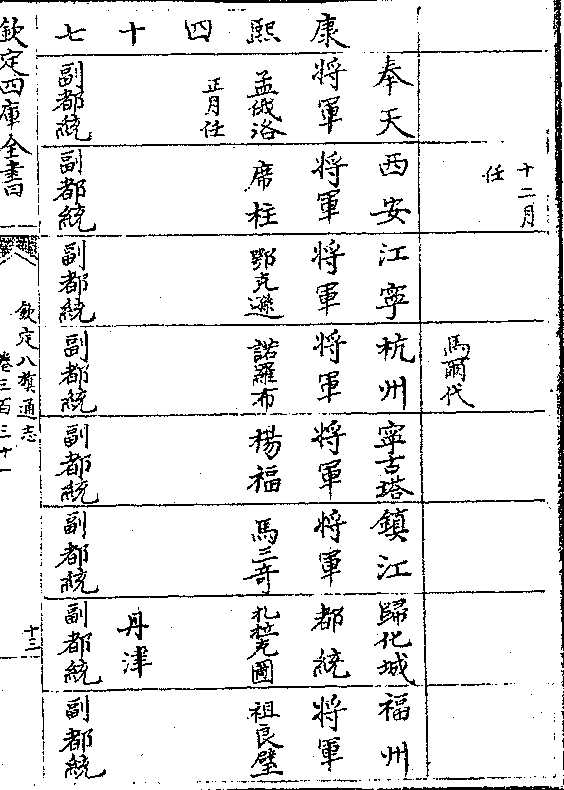 十二月
任
馬爾代
奉天 西安 江寧 杭州 寧古塔 鎮江 歸化城 福州
康 將軍 將軍 將軍 將軍 將軍 將軍 都統 將軍
熙 孟俄洛 席柱 鄂克遜 諾羅布 楊福 馬三奇 扎拉克圖 祖良璧
四 正月任
十 丹津
七 副都統 副都統 副都統 副都統 副都統 副都統 副都統 副都統
欽定四庫全書
欽定八旗通志
卷三百三十一
十三